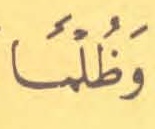 وَظُلْمًا